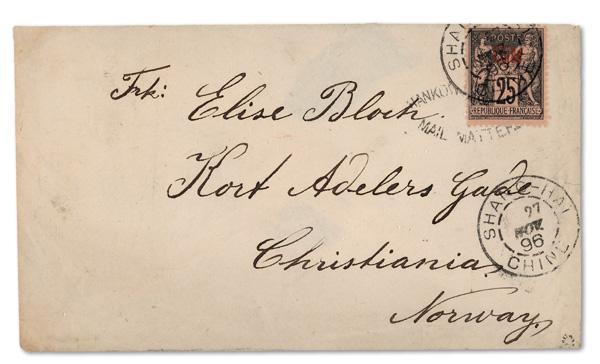 SHANG-HAI
POSTE
25
REPUBLIQUE FRANÇAISE
HANKOW
MAIL MATTER
Frk: Elise Bloch.
Kort Adelers Gade
Christiania,
Norway,
SHANG-HAI
27
NOV.
96
CHINE